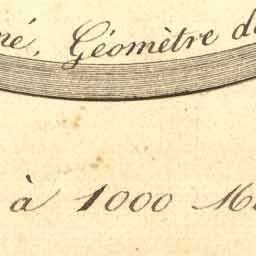 né, Géomètre d
à 1000 M